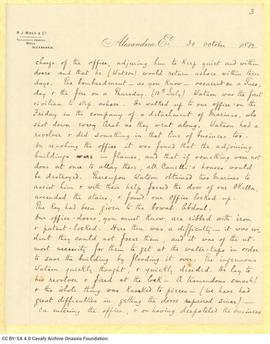 3
R. J. MOSS & Co
ALEXANDRIA.
Alexandria, Et. 30 October 1882
charge of the office, adjuring him to keep quiet and within
doors and that he (Watson) would return ashore within three
days. The bombardment – as you know – occurred on a Tuesday,
& the fire on a Thursday. (13th July) Watson was the first
civilian to step ashore. He walked up to our office on the
Friday in the company of a detachment of Marines, who
shot down every Arab as they went along. Watson had a
revolver & did something in that line of business too.
On reaching the office it was found that the adjoining
buildings were in flames, and that if something were not
done at once to allay this, all Camilli's houses would
be destroyed. Thereupon Watson obtained two marines to
assist him & with their help forced the door of our Okella,
ascended the stairs, & found our Office locked up.
The key has been given to the boab Abdul.
Our office doors, you must know, are ribbed with iron
& patent locked. Here then was a difficulty – it was evi
dent they could not force them, and it was of the ut
most necessity for them to get at the water-taps in order
to save the building by flooding it over. The ingenuous
Watson quickly thought, & quickly decided. He lay to
his revolver & fired at the lock – A tremendous smash!
& the whole thing was knocked to pieces – (we have had
great difficulties in getting the doors repaired since) –
On entering the office, & on having despatched the business
CC BY-SA 4.0 Cavafy Archive Onassis Foundation